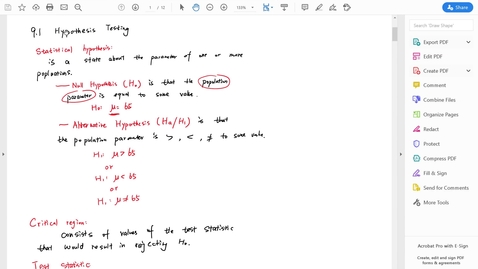 1 / 12
133%
Share
9.1 Hypothesis Testing
Statistical hypothesis:
is a state about the parameter of one or more
populations.
— Null Hypothesis (H₀) is that the population
parameter is equal to some value.
H₀: μ = 65
— Alternative Hypothesis (Ha/H₁) is that
the population parameter is >, <, ≠ to some value.
H₁: μ > 65
or
H₁: μ < 65
or
H₁: μ ≠ 65
Critical region:
consists of values of the test statistic
that would result in rejecting H₀.
Test statistic
Search 'Draw Shape'
Export PDF
Edit PDF
Create PDF
Comment
Combine Files
Organize Pages
Redact
Protect
Compress PDF
Fill & Sign
Send for Comments
More Tools
Acrobat Pro with E-Sign
Create, edit and sign PDF
forms & agreements